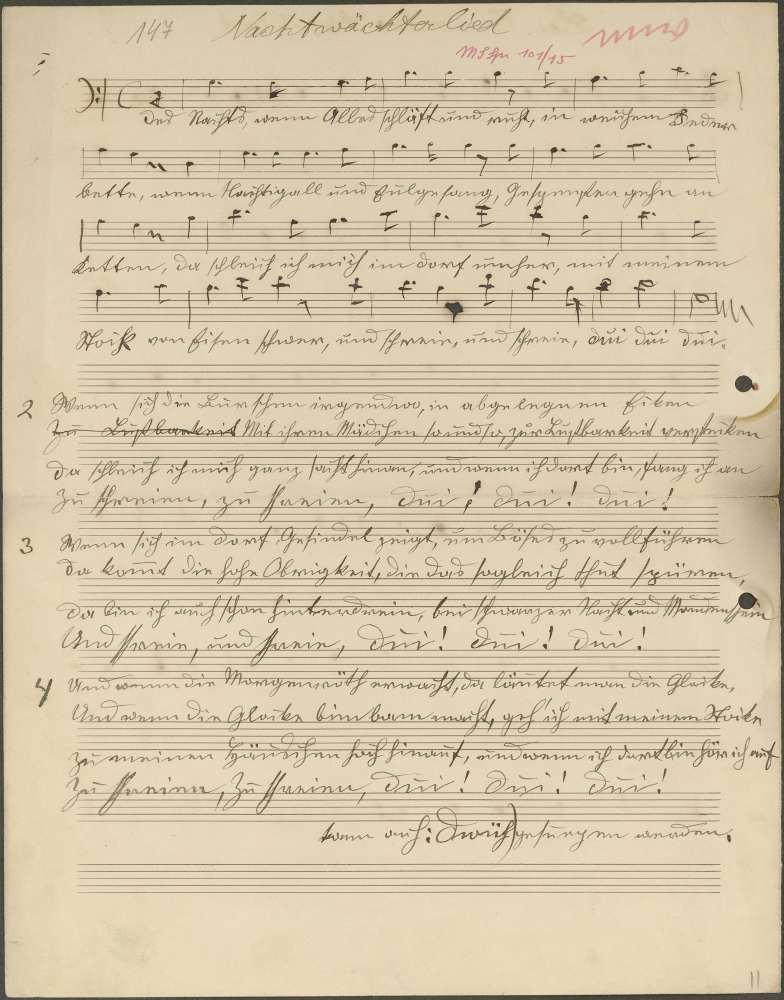 147 Nachtwächterlied
101/15
Des Nachts, wenn Alles schläft und ruht, in weichem Feder
bette, wenn Nachtigall und Eulgesang, Gespensten gehn an
Ketten, da schleich ich mich im Dorf umher, mit meinem
Stock von Eisen schwer, und schreie, und schreie, dui dui dui.
2 Wenn sich die Burschen irgendwo, in abgelegnen Eiken
Zu Lustbarkeit Mit ihren Mädchen so und so, zur Lustbarkeit verstecken
Da schleich ich mich ganz sacht hinan, und wenn ich dort bin, fang ich an
Zu schreien, zu schreien, Dui! Dui! Dui!
3 Wenn sich im Dorf Gesindel zeigt, um Böses zu vollführen
Da kommt die hohe Obrigkeit, die das sogleich thut spüren,
Da bin ich auch schon hinterdrein, bei schwarzer Nacht und Mondenschein
Und schreie, und schreie, Dui! Dui! Dui!
4 Und wenn die Morgenröth erwacht, da läutet man die Glocke,
Und wenn die Glocke bimbam macht, geh ich mit meinem Stocke
Zu meinen Häuschen hoch hinauf, und wenn ich dort bin hör ich auf
Zu schreien, Zu schreien, Dui! Dui! Dui!
kann auch: gesungen werden.
11